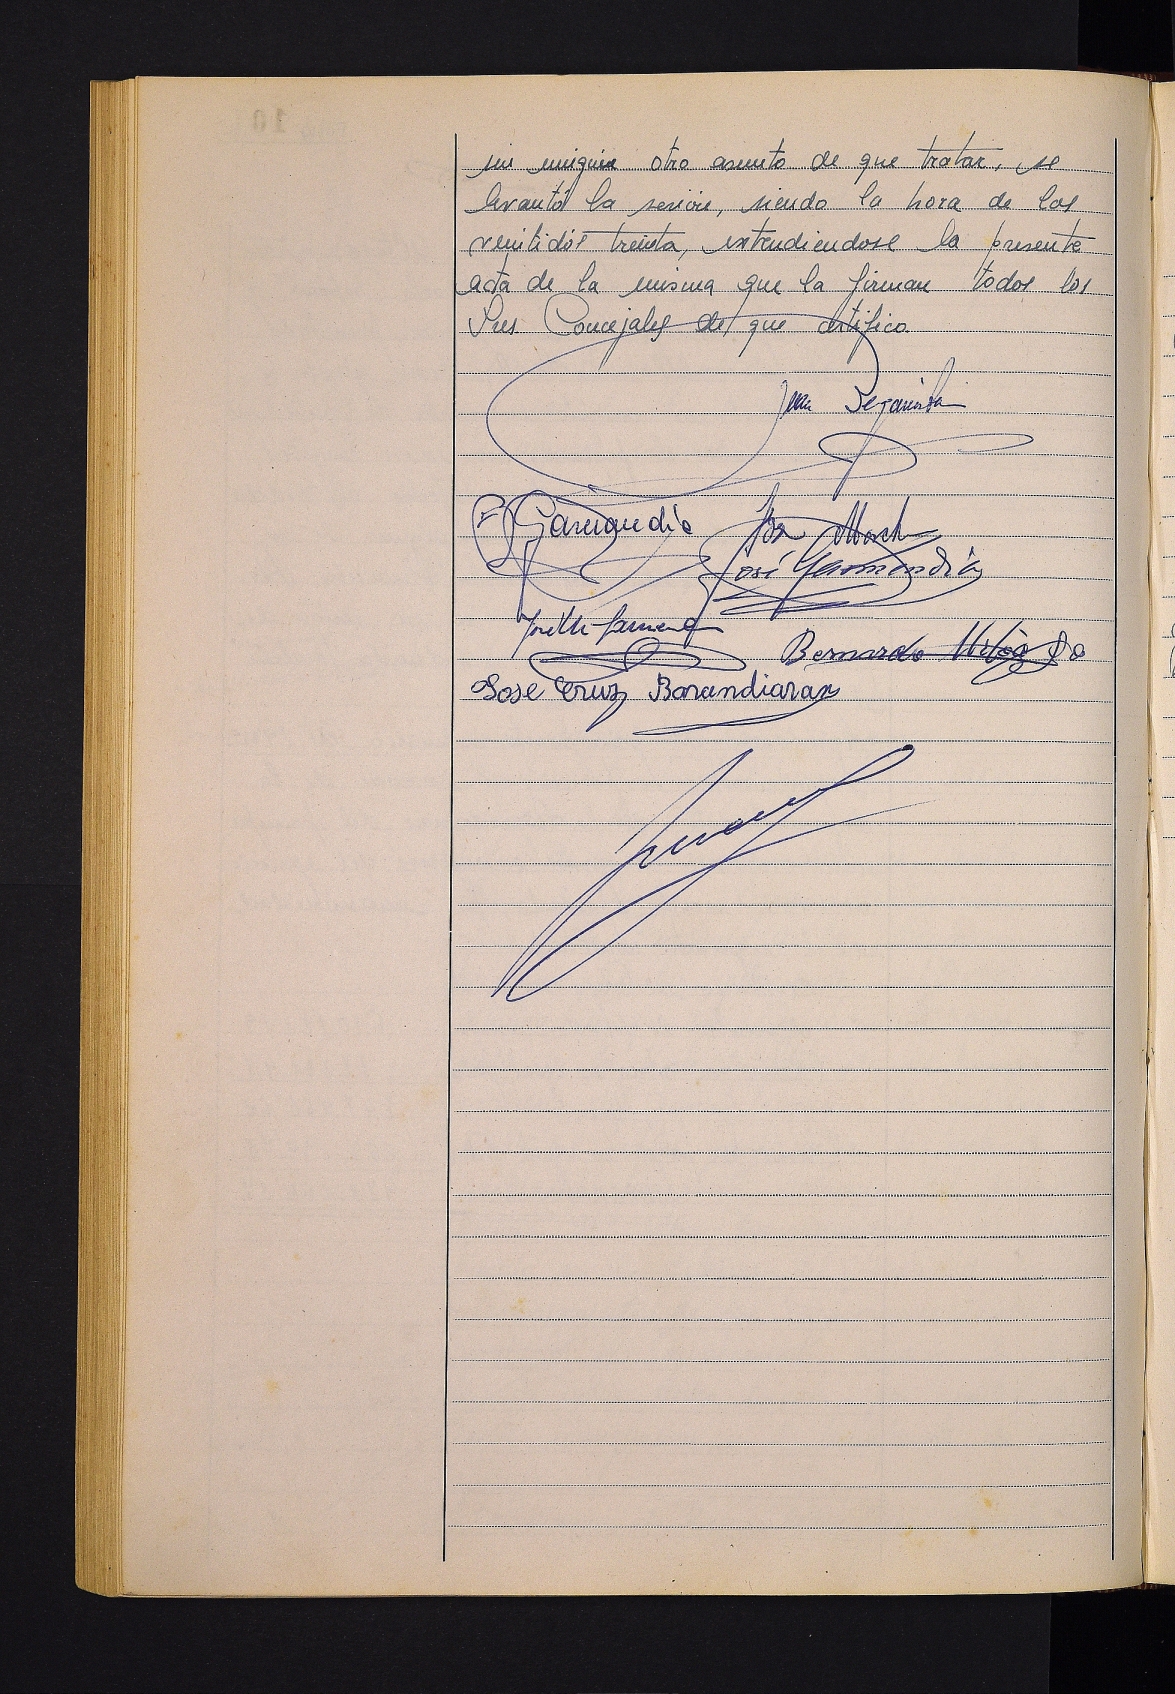 sin ningún otro asunto de que tratar, se
levantó la sesión, siendo la hora de las
veintidós treinta, extendiendose la presente
acta de la misma que la firman todos los
Sres Concejales de que certifico.
Juan
Garmandia
José Garmendia
Bernardo
Jose Cruz Barandiaran